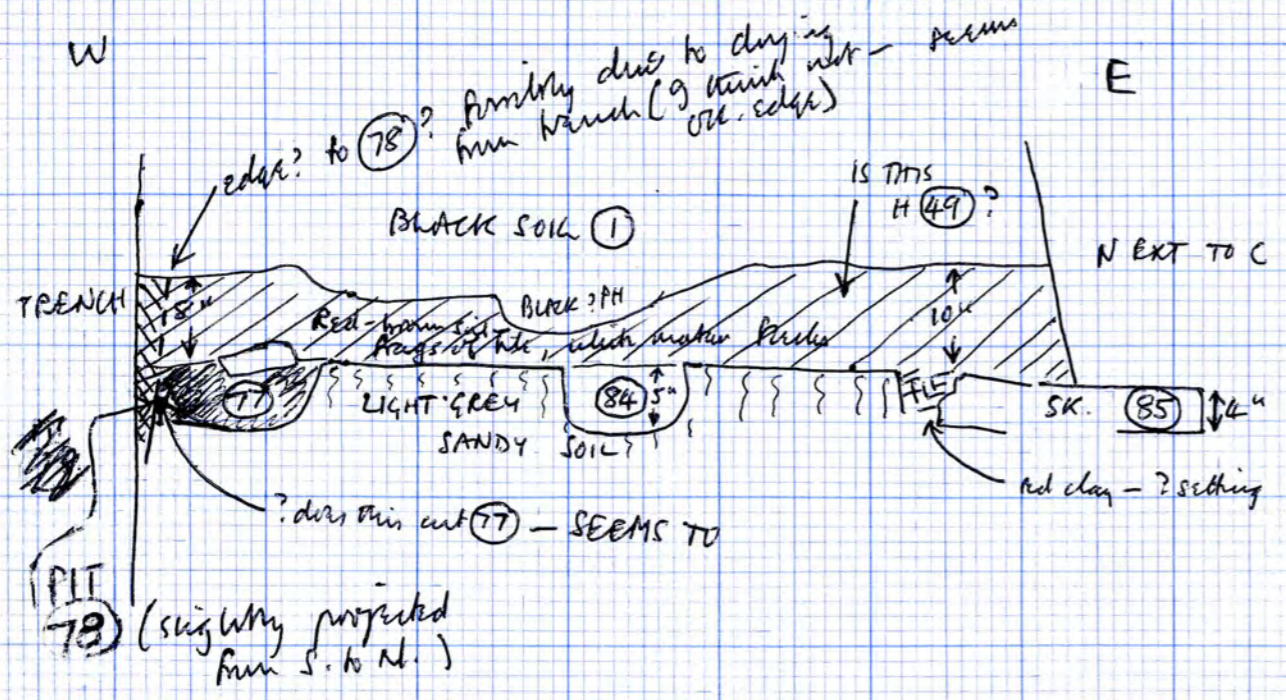 W
E
edge? to 78? Possibly due to digging
from trench (I think not — seems
OK. edge)
IS THIS
H 49 ?
BLACK SOIL 1
NEXT TO C
TRENCH
18"
BLACK ?PH
10"
Red-brown
frags of tile, which flecks
77
LIGHT GREY
SANDY SOIL
84
5"
SK. 85
4"
red clay — ? setting
? does this cut 77 — SEEMS TO
PIT
78 (slightly projected
from S. to N.)